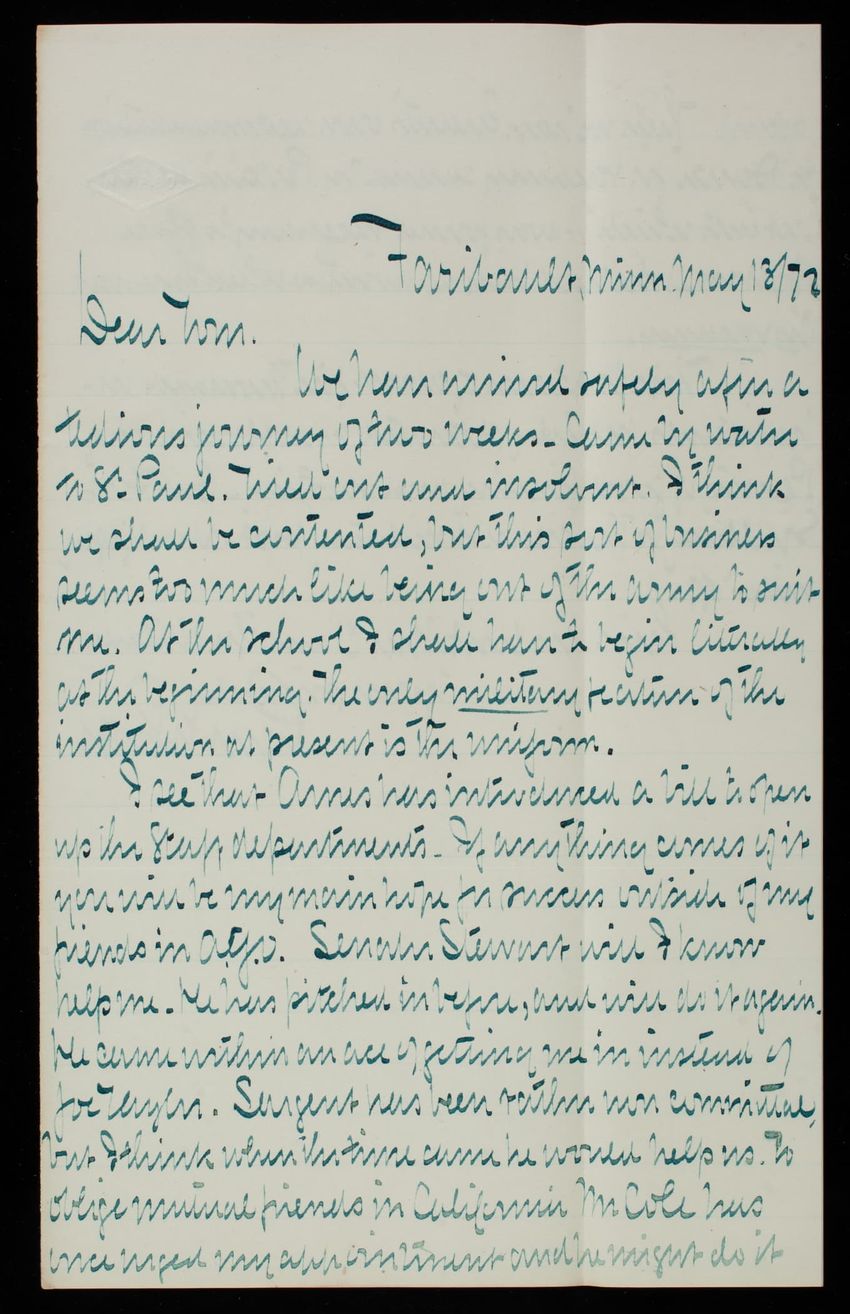 Faribault, Minn. May 13/72
Dear Tom.
We have arrived safely after a
tedious journey of two weeks - Came by water
to St. Paul. Tired out and insolvent. I think
we shall be contented, but this sort of business
seems too much like being out of the army to suit
me. At the school I shall have to begin literally
at the beginning. The only military feature of the
institution at present is the uniform.
I see that Ames has introduced a bill to open
up the Staff departments - If anything comes of it
you will be my main hope for success outside of my
friends in A.G.O. Senator Stewart will I know
help me - He has pitched in before, and will do it again.
He came within an ace of getting me in instead of
Joe Taylor. Sargent has been rather non committal,
but I think when the time came he would help us. To
oblige mutual friends in California Mr Cole has
once urged my appointment and he might do it